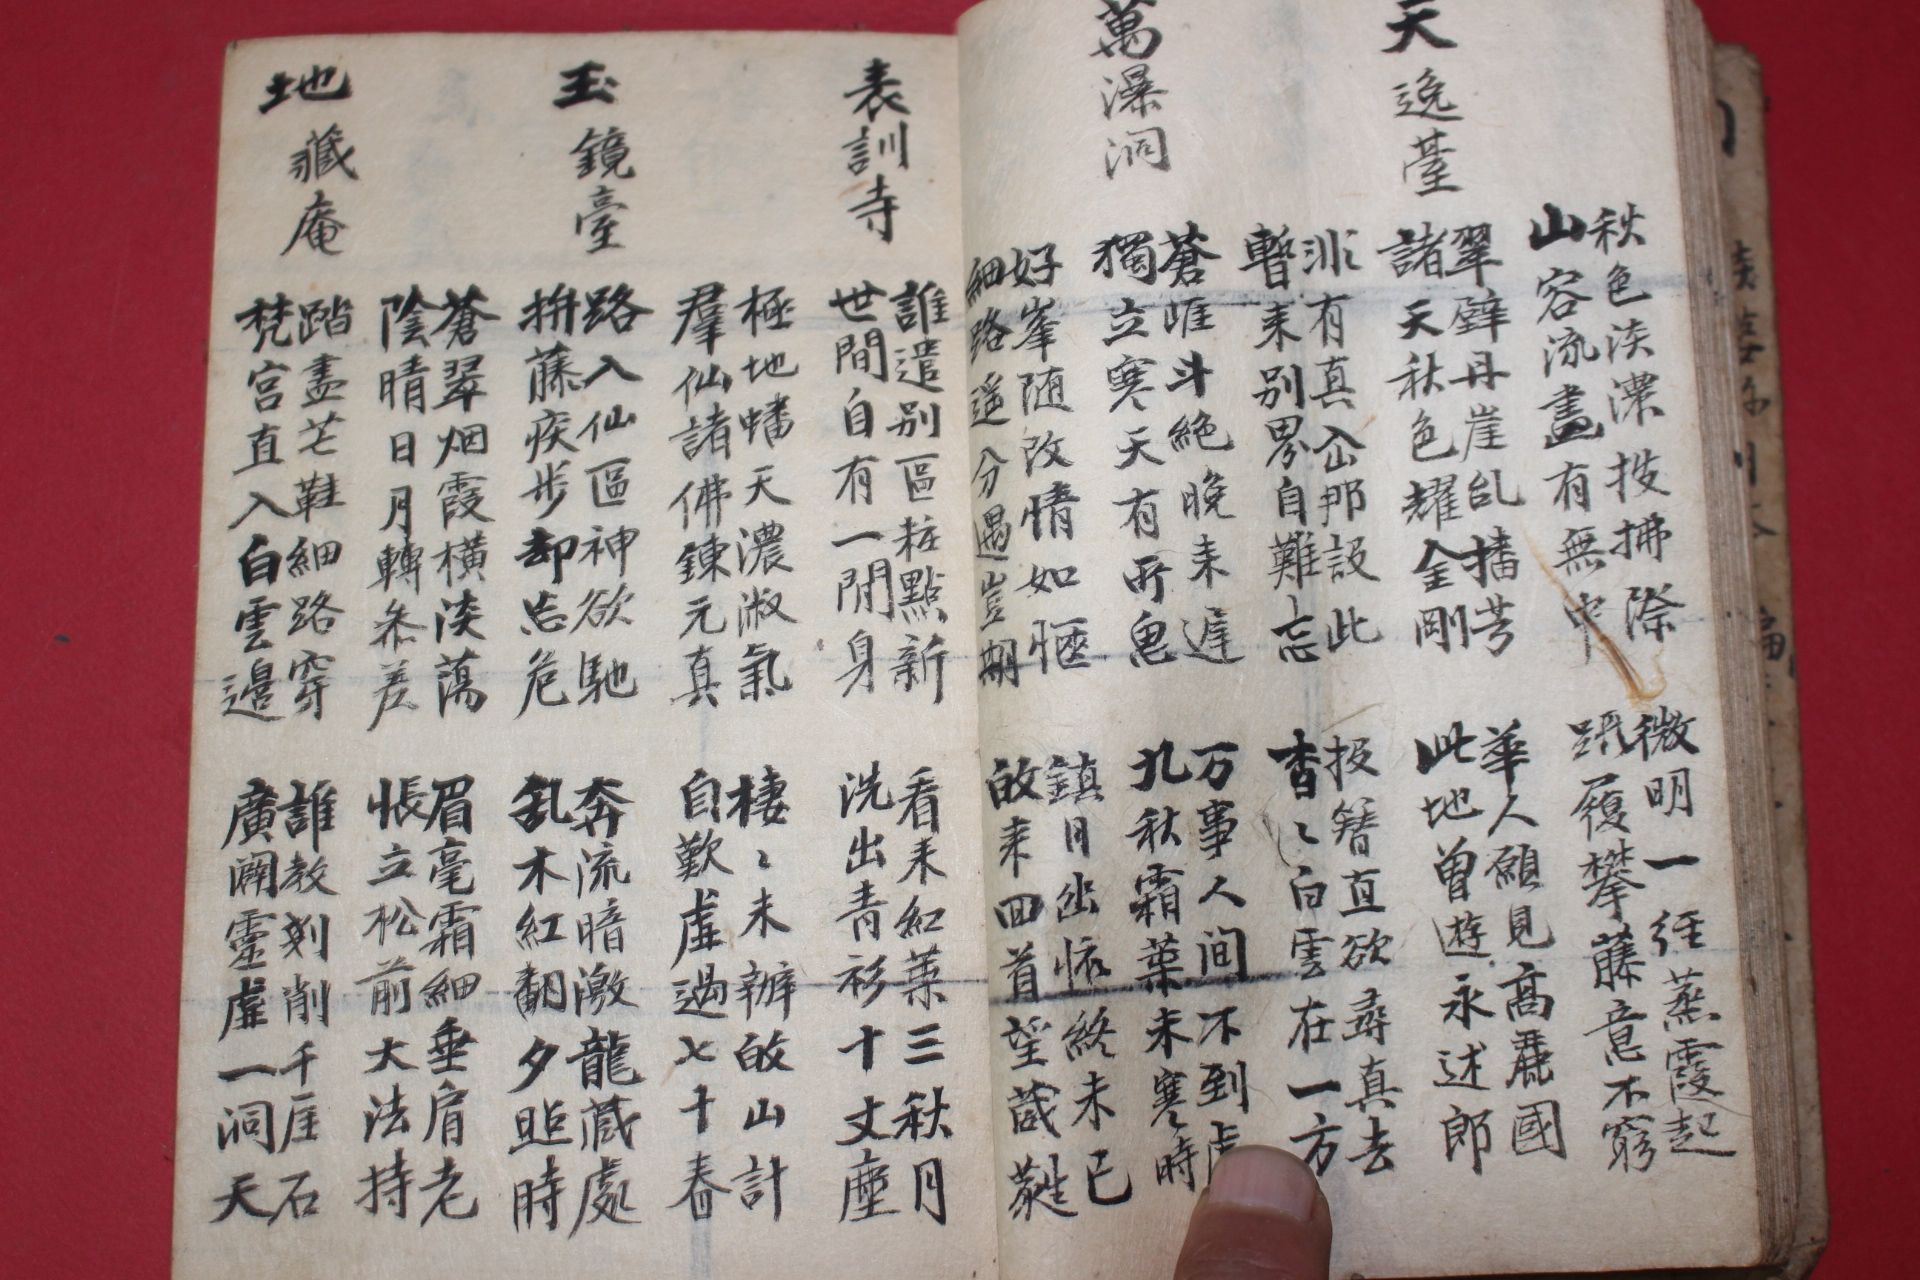 秋色淡濃披拂際
山容流盡有無中
微明一徑蒸霞起
躡履攀藤意不窮
天逸臺
翠壁丹崖乱播芳
諸天秋色耀金剛
華人願見高麗國
此地曾遊永述郎
非有真仚那設此
暫来别界自難忘
投簪直欲尋真去
杳〻白雲在一方
萬瀑洞
蒼崕斗絶晚来遅
獨立寒天有所思
万事人间不到
九秋霜葉未寒時
好峯随改情如
細路遥分遇豈期
鎮日出  終未已
故来回首望葳蕤
表訓寺
誰遣别區粧點新
世間自有一閒身
看来紅葉三秋月
洗出青衫十丈塵
極地蟠天濃淑氣
羣仙諸佛鍊元真
棲〻未辦故山計
自歎虚過七十春
玉鏡臺
路入仙區神欲馳
拚藤疾步却忘危
奔流暗激龍藏處
乱木紅翻夕照時
蒼翠烟霞横淡蕩
陰晴日月轉參差
眉毫霜細垂肩老
悵立松前大法持
地藏庵
踏盡芒鞋細路穿
梵宫直入白雲邉
誰教剗削千厓石
廣闢靈虚一洞天